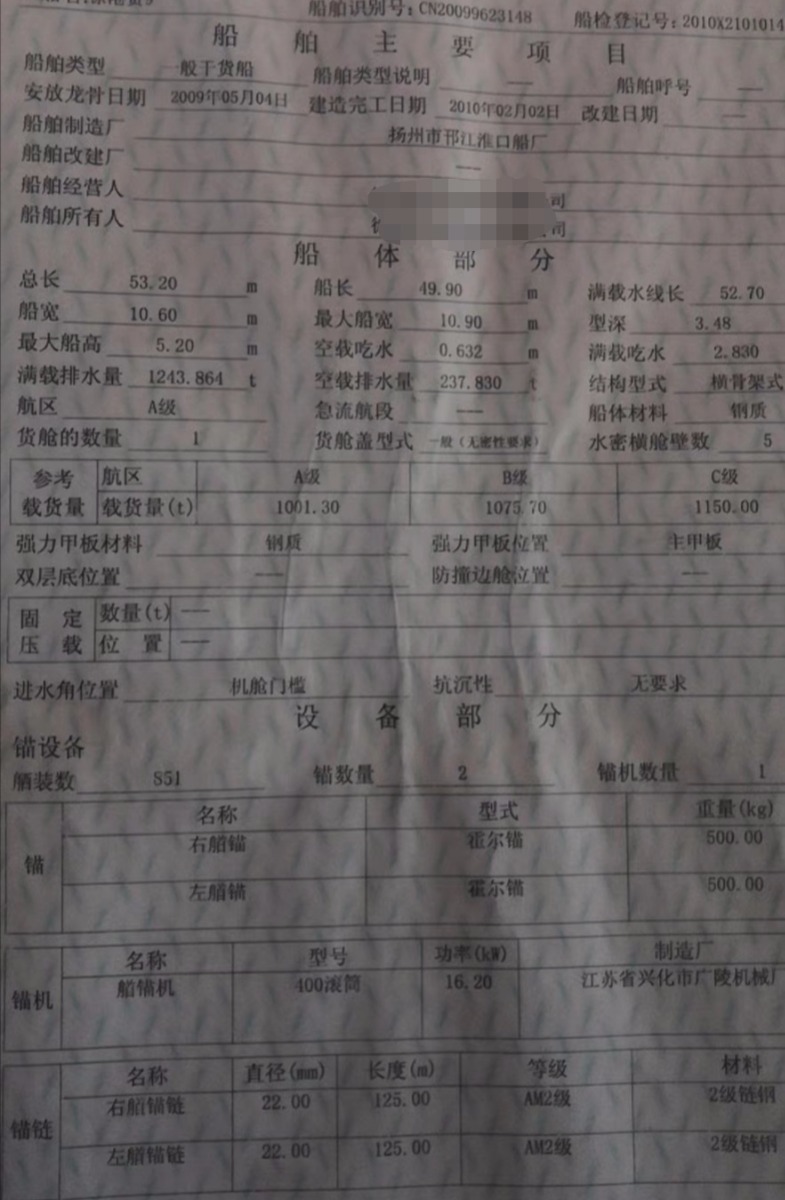 船舶识别号:CN20099623148 船检登记号:2010X2101014
船舶主要项目
船舶类型 一般干货船 船舶类型说明 —— 船舶呼号 ——
安放龙骨日期 2009年05月04日 建造完工日期 2010年02月02日 改建日期 ——
船舶制造厂 扬州市邗江淮口船厂
船舶改建厂 ——
船舶经营人 司
船舶所有人 司
船体部分
总长 53.20 m 船长 49.90 m 满载水线长 52.70
船宽 10.60 m 最大船宽 10.90 m 型深 3.48
最大船高 5.20 m 空载吃水 0.632 m 满载吃水 2.830
满载排水量 1243.864 t 空载排水量 237.830 t 结构型式 横骨架式
航区 A级 急流航段 —— 船体材料 钢质
货舱的数量 1 货舱盖型式 一般(无密性要求) 水密横舱壁数 5
参考 航区 A级 B级 C级
载货量 载货量(t) 1001.30 1075.70 1150.00
强力甲板材料 钢质 强力甲板位置 主甲板
双层底位置 —— 防撞边舱位置 ——
固定 数量(t) ——
压载 位置 ——
进水角位置 机舱门槛 抗沉性 无要求
设备部分
锚设备
舾装数 S51 锚数量 2 锚机数量 1
名称 型式 重量(kg)
锚
右艏锚 霍尔锚 500.00
左艏锚 霍尔锚 500.00
名称 型号 功率(kW) 制造厂
锚机 艏锚机 400滚筒 16.20 江苏省兴化市广陵机械厂
名称 直径(mm) 长度(m) 等级 材料
锚链
右艏锚链 22.00 125.00 AM2级 2级链钢
左艏锚链 22.00 125.00 AM2级 2级链钢